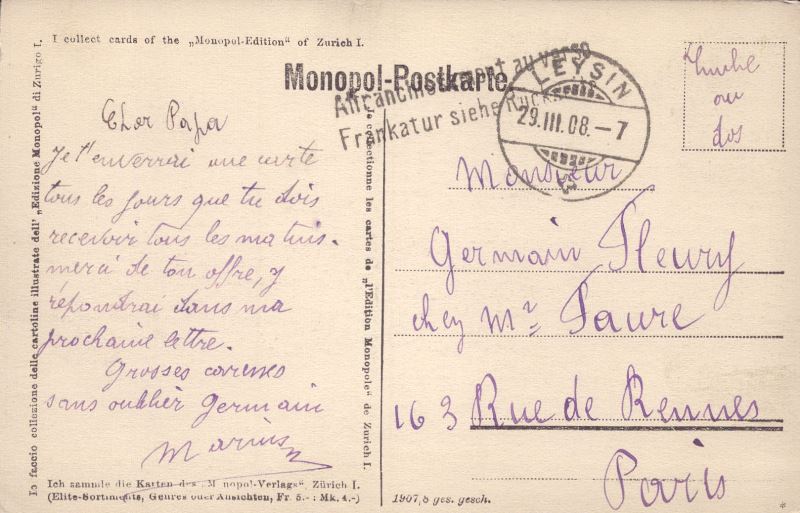 I collect cards of the „Monopol-Edition“ of Zurich I.
Monopol-Postkarte
Affranchissement au verso
Frankatur siehe Rückseite
LEYSIN
29.III.08.–7
timbre
au
dos
Cher Papa
Je t'enverrai une carte
tous les jours que tu dois
recevoir tous les matins.
merci de ton offre, j'y
répondrai dans ma
prochaine lettre.
Grosses caresses
sans oublier Germain
Marius
Monsieur
Germain Fleury
chez Mr Faure
163 Rue de Rennes
Paris
Io faccio collezione delle cartoline illustrate dell' „Edizione Monopol“ di Zurigo I.
Je collectionne les cartes de „l'Edition Monopole“ de Zurich I.
Ich sammle die Karten des „Monopol-Verlags“, Zürich I.
(Elite-Sortiments, Genres oder Ansichten, Fr. 5.- : Mk. 4.-)
1907,8 ges. gesch.
*